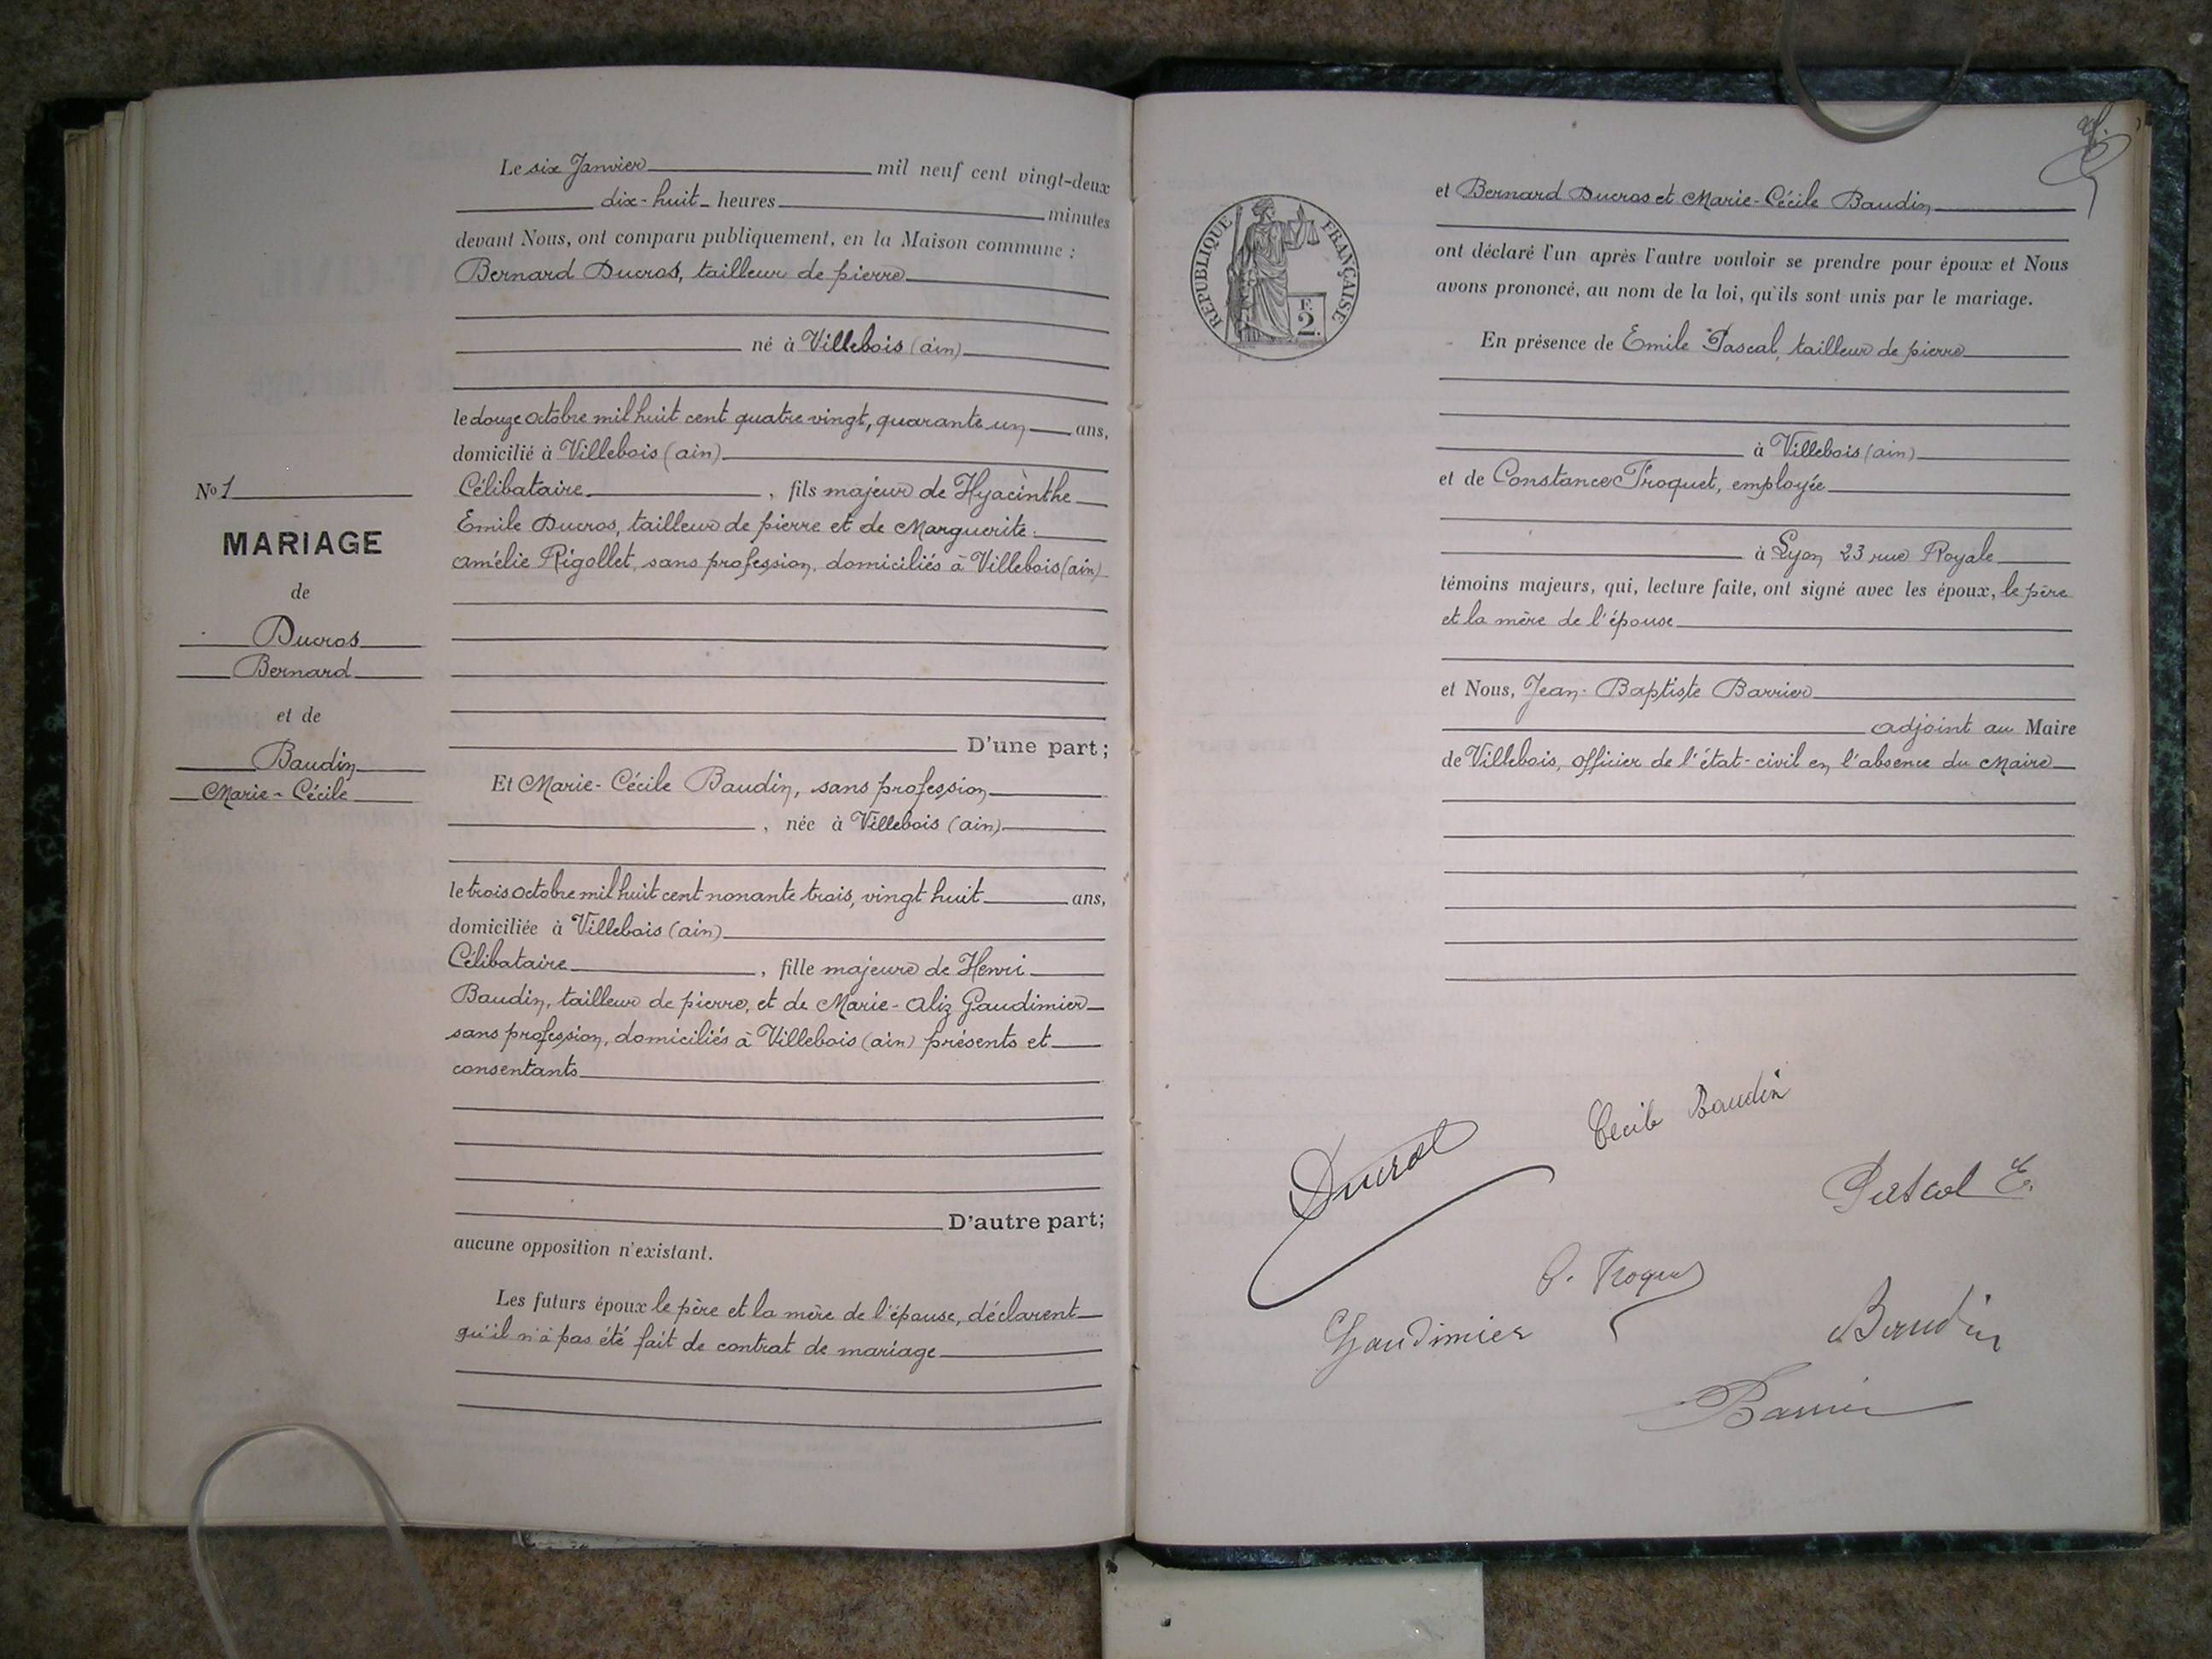 Le six Janvier mil neuf cent vingt-deux
dix-huit heures minutes
devant Nous, ont comparu publiquement, en la Maison commune :
Bernard Ducros, tailleur de pierre
né à Villebois (ain)
le douze octobre mil huit cent quatre vingt, quarante un ans,
domicilié à Villebois (ain)
Célibataire, fils majeur de Hyacinthe
Emile Ducros, tailleur de pierre et de Marguerite
amélie Rigollet, sans profession, domiciliés à Villebois (ain)
D'une part;
No 1
MARIAGE
de
Ducros
Bernard
et de
Baudin
Marie-Cécile
Et Marie-Cécile Baudin, sans profession
, née à Villebois (ain)
le trois octobre mil huit cent nonante trois, vingt huit ans,
domiciliée à Villebois (ain)
Célibataire, fille majeure de Henri
Baudin, tailleur de pierre, et de Marie-aliz Gaudimier
sans profession, domiciliés à Villebois (ain) présents et
consentants
D'autre part;
aucune opposition n'existant.
Les futurs époux le père et la mère de l'épouse, déclarent
qu'il n'a pas été fait de contrat de mariage
RÉPUBLIQUE FRANÇAISE
F.
2.
et Bernard Ducros et Marie-Cécile Baudin
ont déclaré l'un après l'autre vouloir se prendre pour époux et Nous
avons prononcé, au nom de la loi, qu'ils sont unis par le mariage.
En présence de Emile Pascal, tailleur de pierre
à Villebois (ain)
et de Constance Troquet, employée
à Lyon 23 rue Royale
témoins majeurs, qui, lecture faite, ont signé avec les époux, le père
et la mère de l'épouse
et Nous, Jean-Baptiste Barrier
adjoint au Maire
de Villebois, officier de l'état-civil en l'absence du Maire
Cécile Baudin
Ducros
Pascal E.
C. Troquet
Gaudimier
Baudin
Barrier